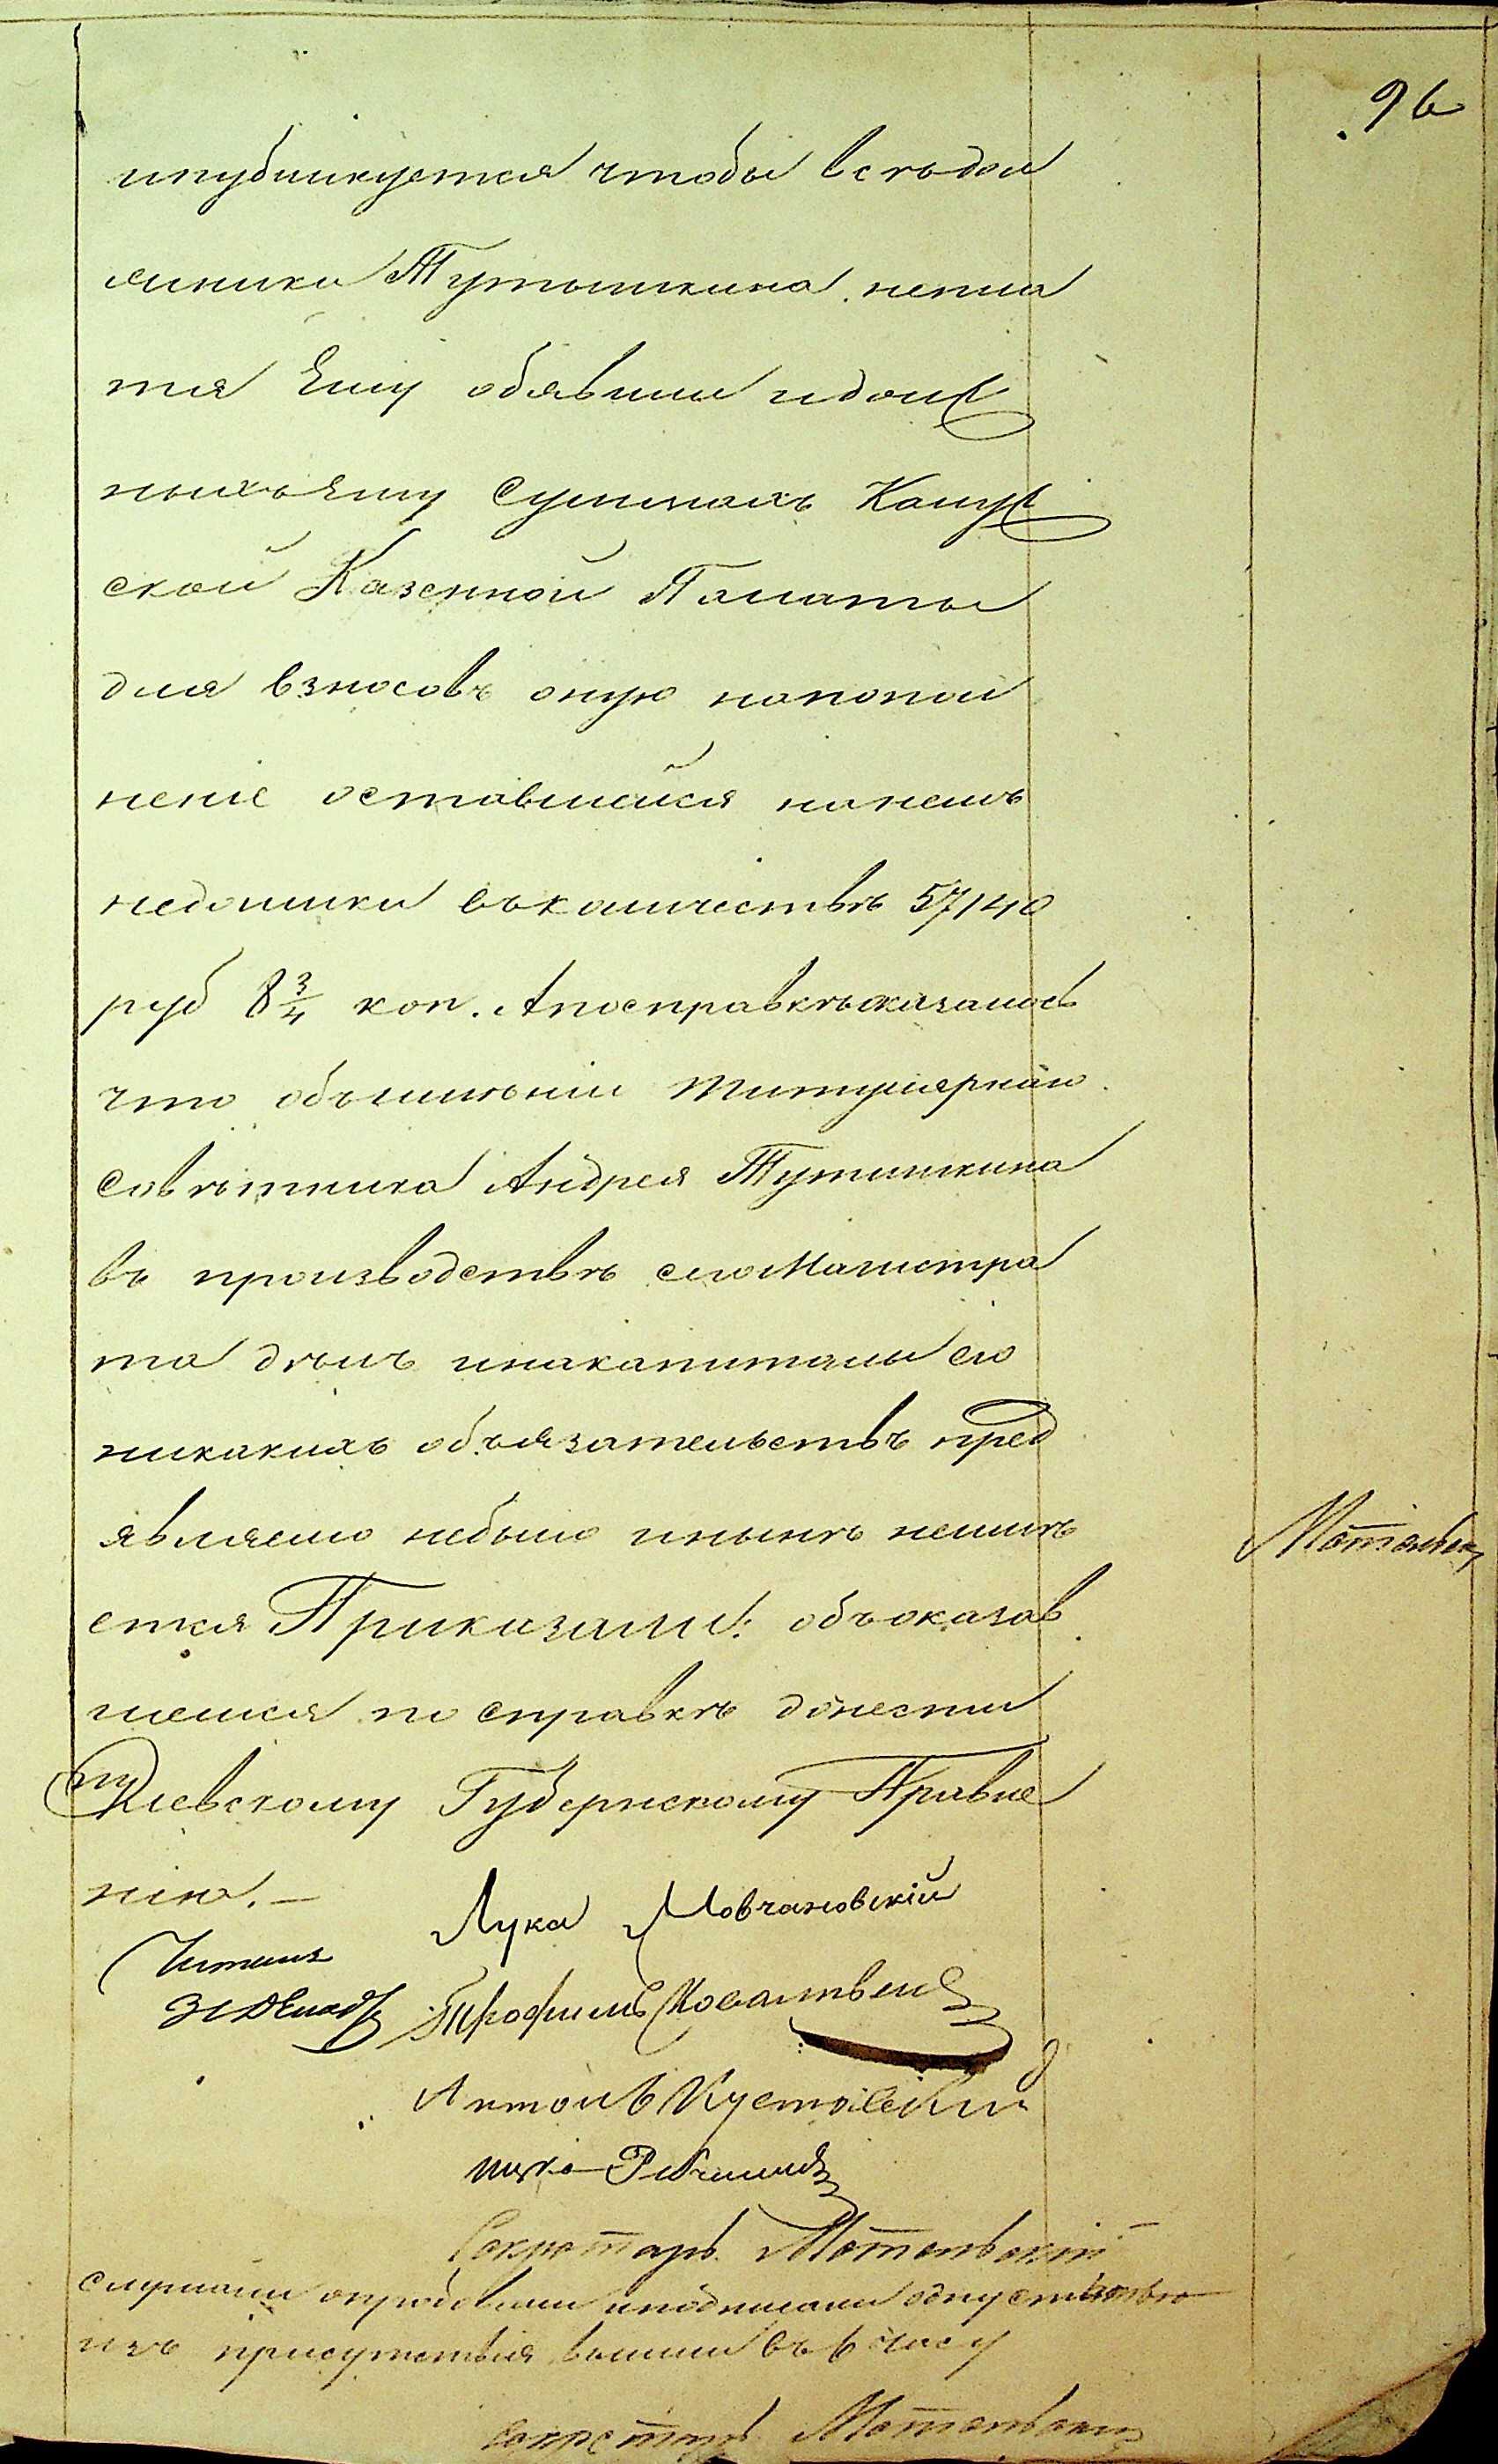 96
ипубликуется чтобы всѣ дол
жники Тутышкина неплa
тя Ему обявили идолж
ныхъ Ему суммахъ Калуж
ской Казенной Палаты
для взносовъ оную напопол
неніе оставшейся нанемъ
недоимки въколичествѣ 57140
руб 8 3/4 коп. Апосправкѣ оказалось
что обымѣніи титулярнаго
совѣтника Андрея Тутышкина
въ производствѣ сегоМагистра
та дѣлъ инакапиталы его
никакихъ объязательствъ пред
являемо небыло инынѣ неимѣ
ется Приказали: объоказав
шемся по справкѣ донести
Кіевскому Губернскому Правле
нію. —
Лука Мовчановскій
Читалъ
Трофимъ
Антонъ
Секретарь
слушали опредѣлили иподписали одну статью
изъ присутствія вышли въ 6 часу
секретарь